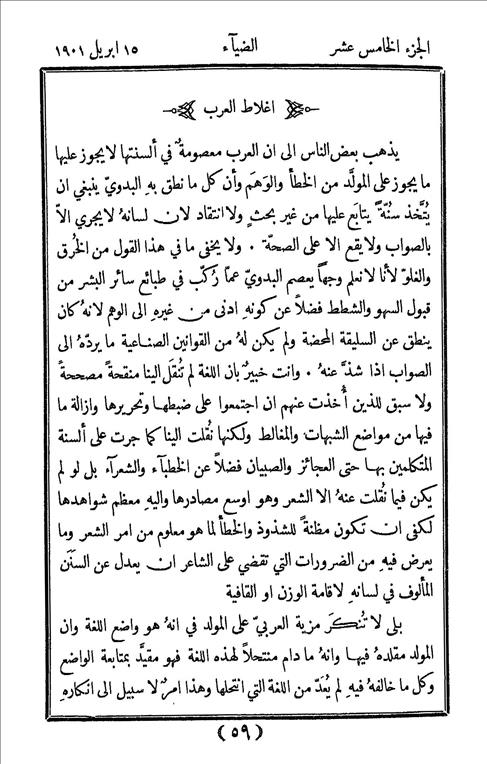 الجزء الخامس عشر الضيآء ١٥ ابريل ١٩٠١
اغلاط العرب
يذهب بعض الناس الى ان العرب معصومةٌ في ألسنتها لا يجوز عليها
ما يجوز على المولَّد من الخطأ والوَهَم وأن كل ما نطق بهِ البدويّ ينبغي ان
يُتَّخذ سنّةً يتابَع عليها من غير بحثٍ ولا انتقاد لان لسانهُ لا يجري الاّ
بالصواب ولا يقع الا على الصحّة ٠ ولا يخفى ما في هذا القول من الخُرق
والغلوّ لأنا لا نعلم وجهاً يعصم البدويّ عمّا رُكّب في طبائع سائر البشر من
قبول السهو والشطط فضلاً عن كونهِ ادنى من غيرهِ الى الوهم لانهُ كان
ينطق عن السليقة المحضة ولم يكن لهُ من القوانين الصناعية ما يردّهُ الى
الصواب اذا شذّ عنهُ ٠ وانت خبيرٌ بان اللغة لم تُنقَل الينا منقحةً مصححةً
ولا سبق للذين أُخذت عنهم ان اجتمعوا على ضبطها وتحريرها وازالة ما
فيها من مواضع الشبهات والمغالط ولكنها نُقلت الينا كما جرت على ألسنة
المتكلمين بها حتى العجائز والصبيان فضلاً عن الخطبآء والشعرآء بل لو لم
يكن فيما نُقلت عنهُ الا الشعر وهو اوسع مصادرها واليهِ معظم شواهدها
لكفى ان تكون مظنةً للشذوذ والخطأ لما هو معلوم من امر الشعر وما
يعرض فيهِ من الضرورات التي تقضي على الشاعر ان يعدل عن السَنَن
المألوف في لسانهِ لاقامة الوزن او القافية
بلى لا تُنكَر مزية العربيّ على المولد في انهُ هو واضع اللغة وان
المولد مقلدهُ فيها وانهُ ما دام منتحلاً لهذه اللغة فهو مقيَّد بمتابعة الواضع
وكل ما خالفهُ فيهِ لم يُعَدّ من اللغة التي انتحلها وهذا امرٌ لا سبيل الى انكارهِ
(٥٩)